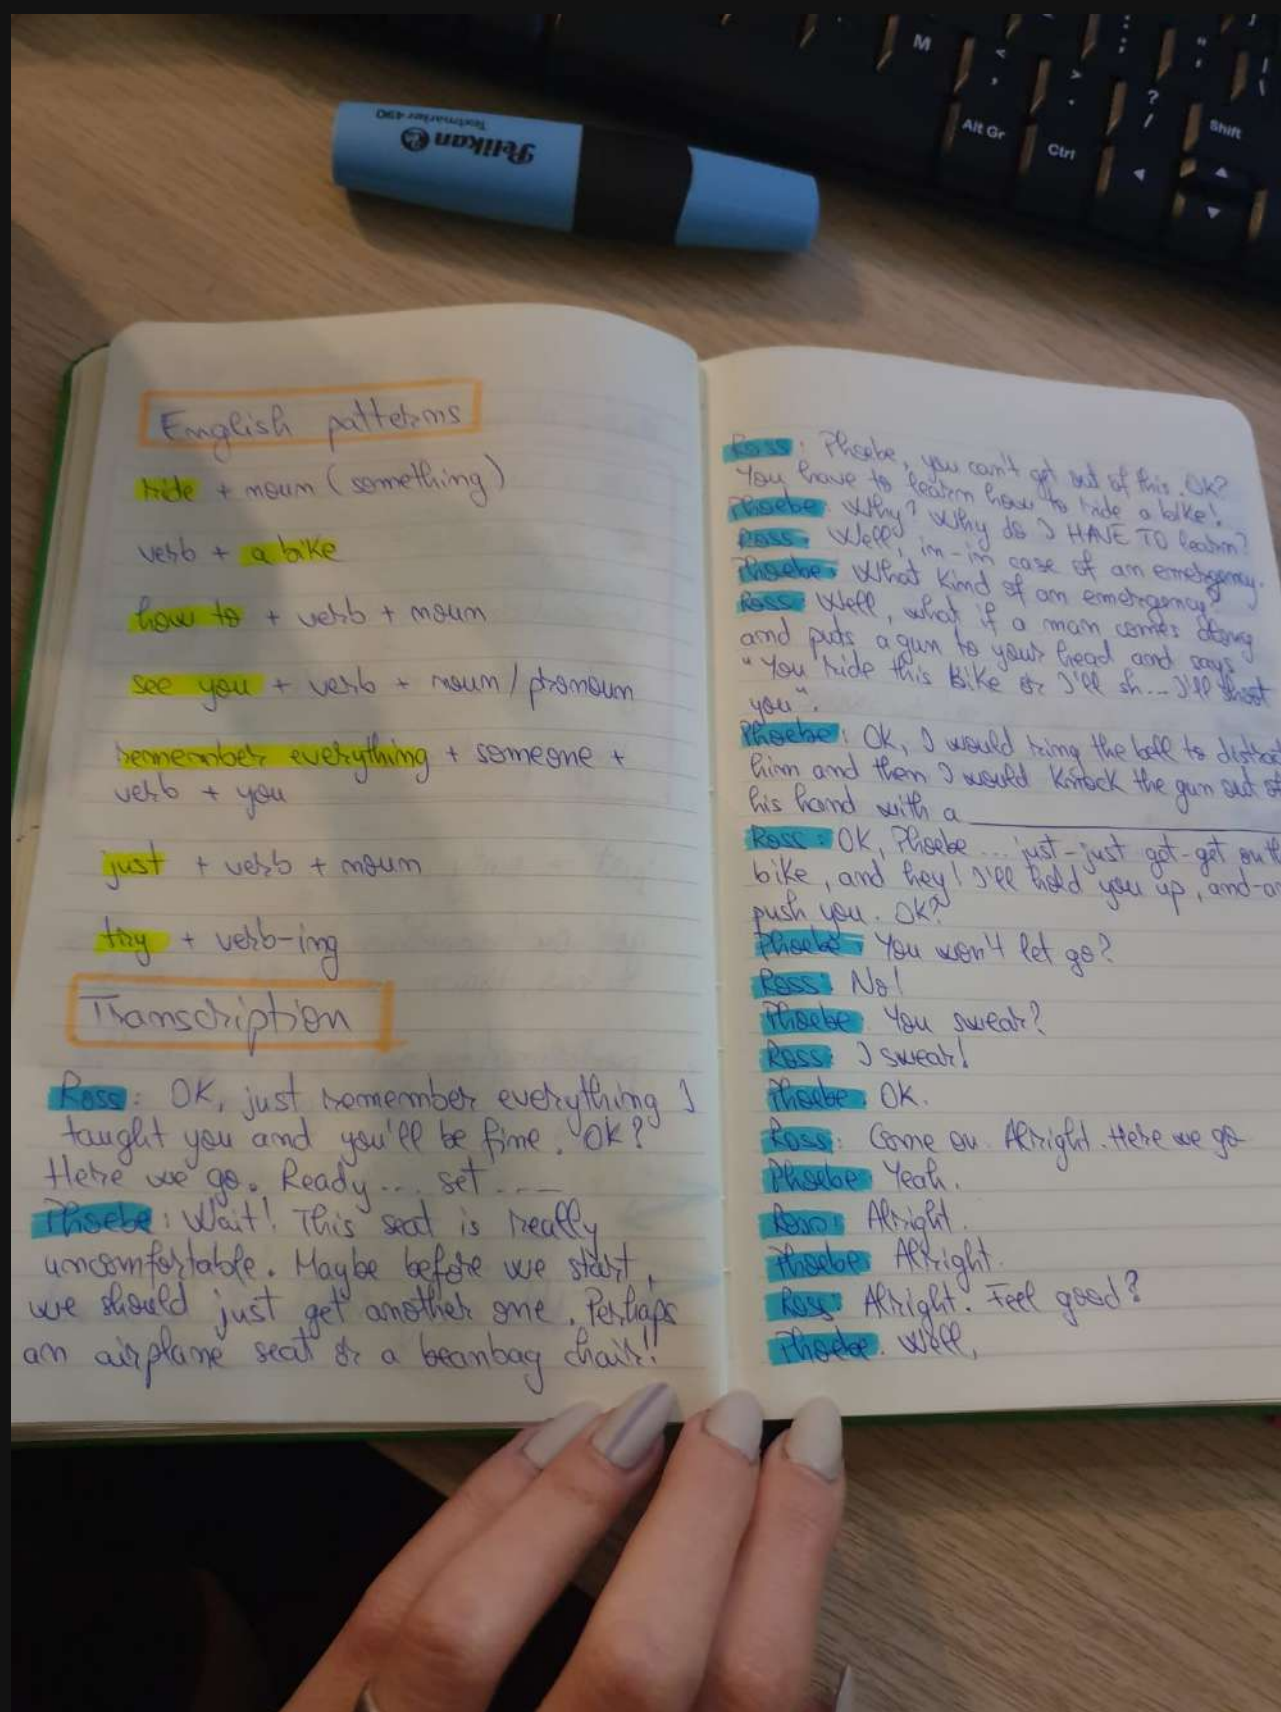 M
<
,
>
.
?
/
Alt Gr
Ctrl
Shift
Textmarker 490
Pelikan
English patterns
ride + noun (something)
verb + a bike
how to + verb + noun
see you + verb + noun/pronoun
remember everything + someone +
verb + you
just + verb + noun
try + verb-ing
Transcription
Ross: OK, just remember everything I
taught you and you'll be fine. OK?
Here we go. Ready... set....
Phoebe: Wait! This seat is really
uncomfortable. Maybe before we start,
we should just get another one. Perhaps
an airplane seat or a beanbag chair!!
Ross: Phoebe, you can't get out of this. OK?
You have to learn how to ride a bike!
Phoebe: Why? Why do I HAVE TO learn?
Ross: Well, in-in case of an emergency.
Phoebe: What kind of an emergency?
Ross: Well, what if a man comes along
and puts a gun to your head and says
"You ride this bike or I'll sh... I'll shoot
you".
Phoebe: OK, I would ring the bell to distract
him and then I would knock the gun out of
his hand with a
Ross: OK, Phoebe... just-just got-get on th
bike, and hey! I'll hold you up, and-an
push you. OK?
Phoebe: You won't let go?
Ross: No!
Phoebe: You swear?
Ross: I swear!
Phoebe: OK.
Ross: Come on. Alright. Here we go
Phoebe: Yeah.
Ross: Alright.
Phoebe: Alright.
Ross: Alright. Feel good?
Phoebe: Well,